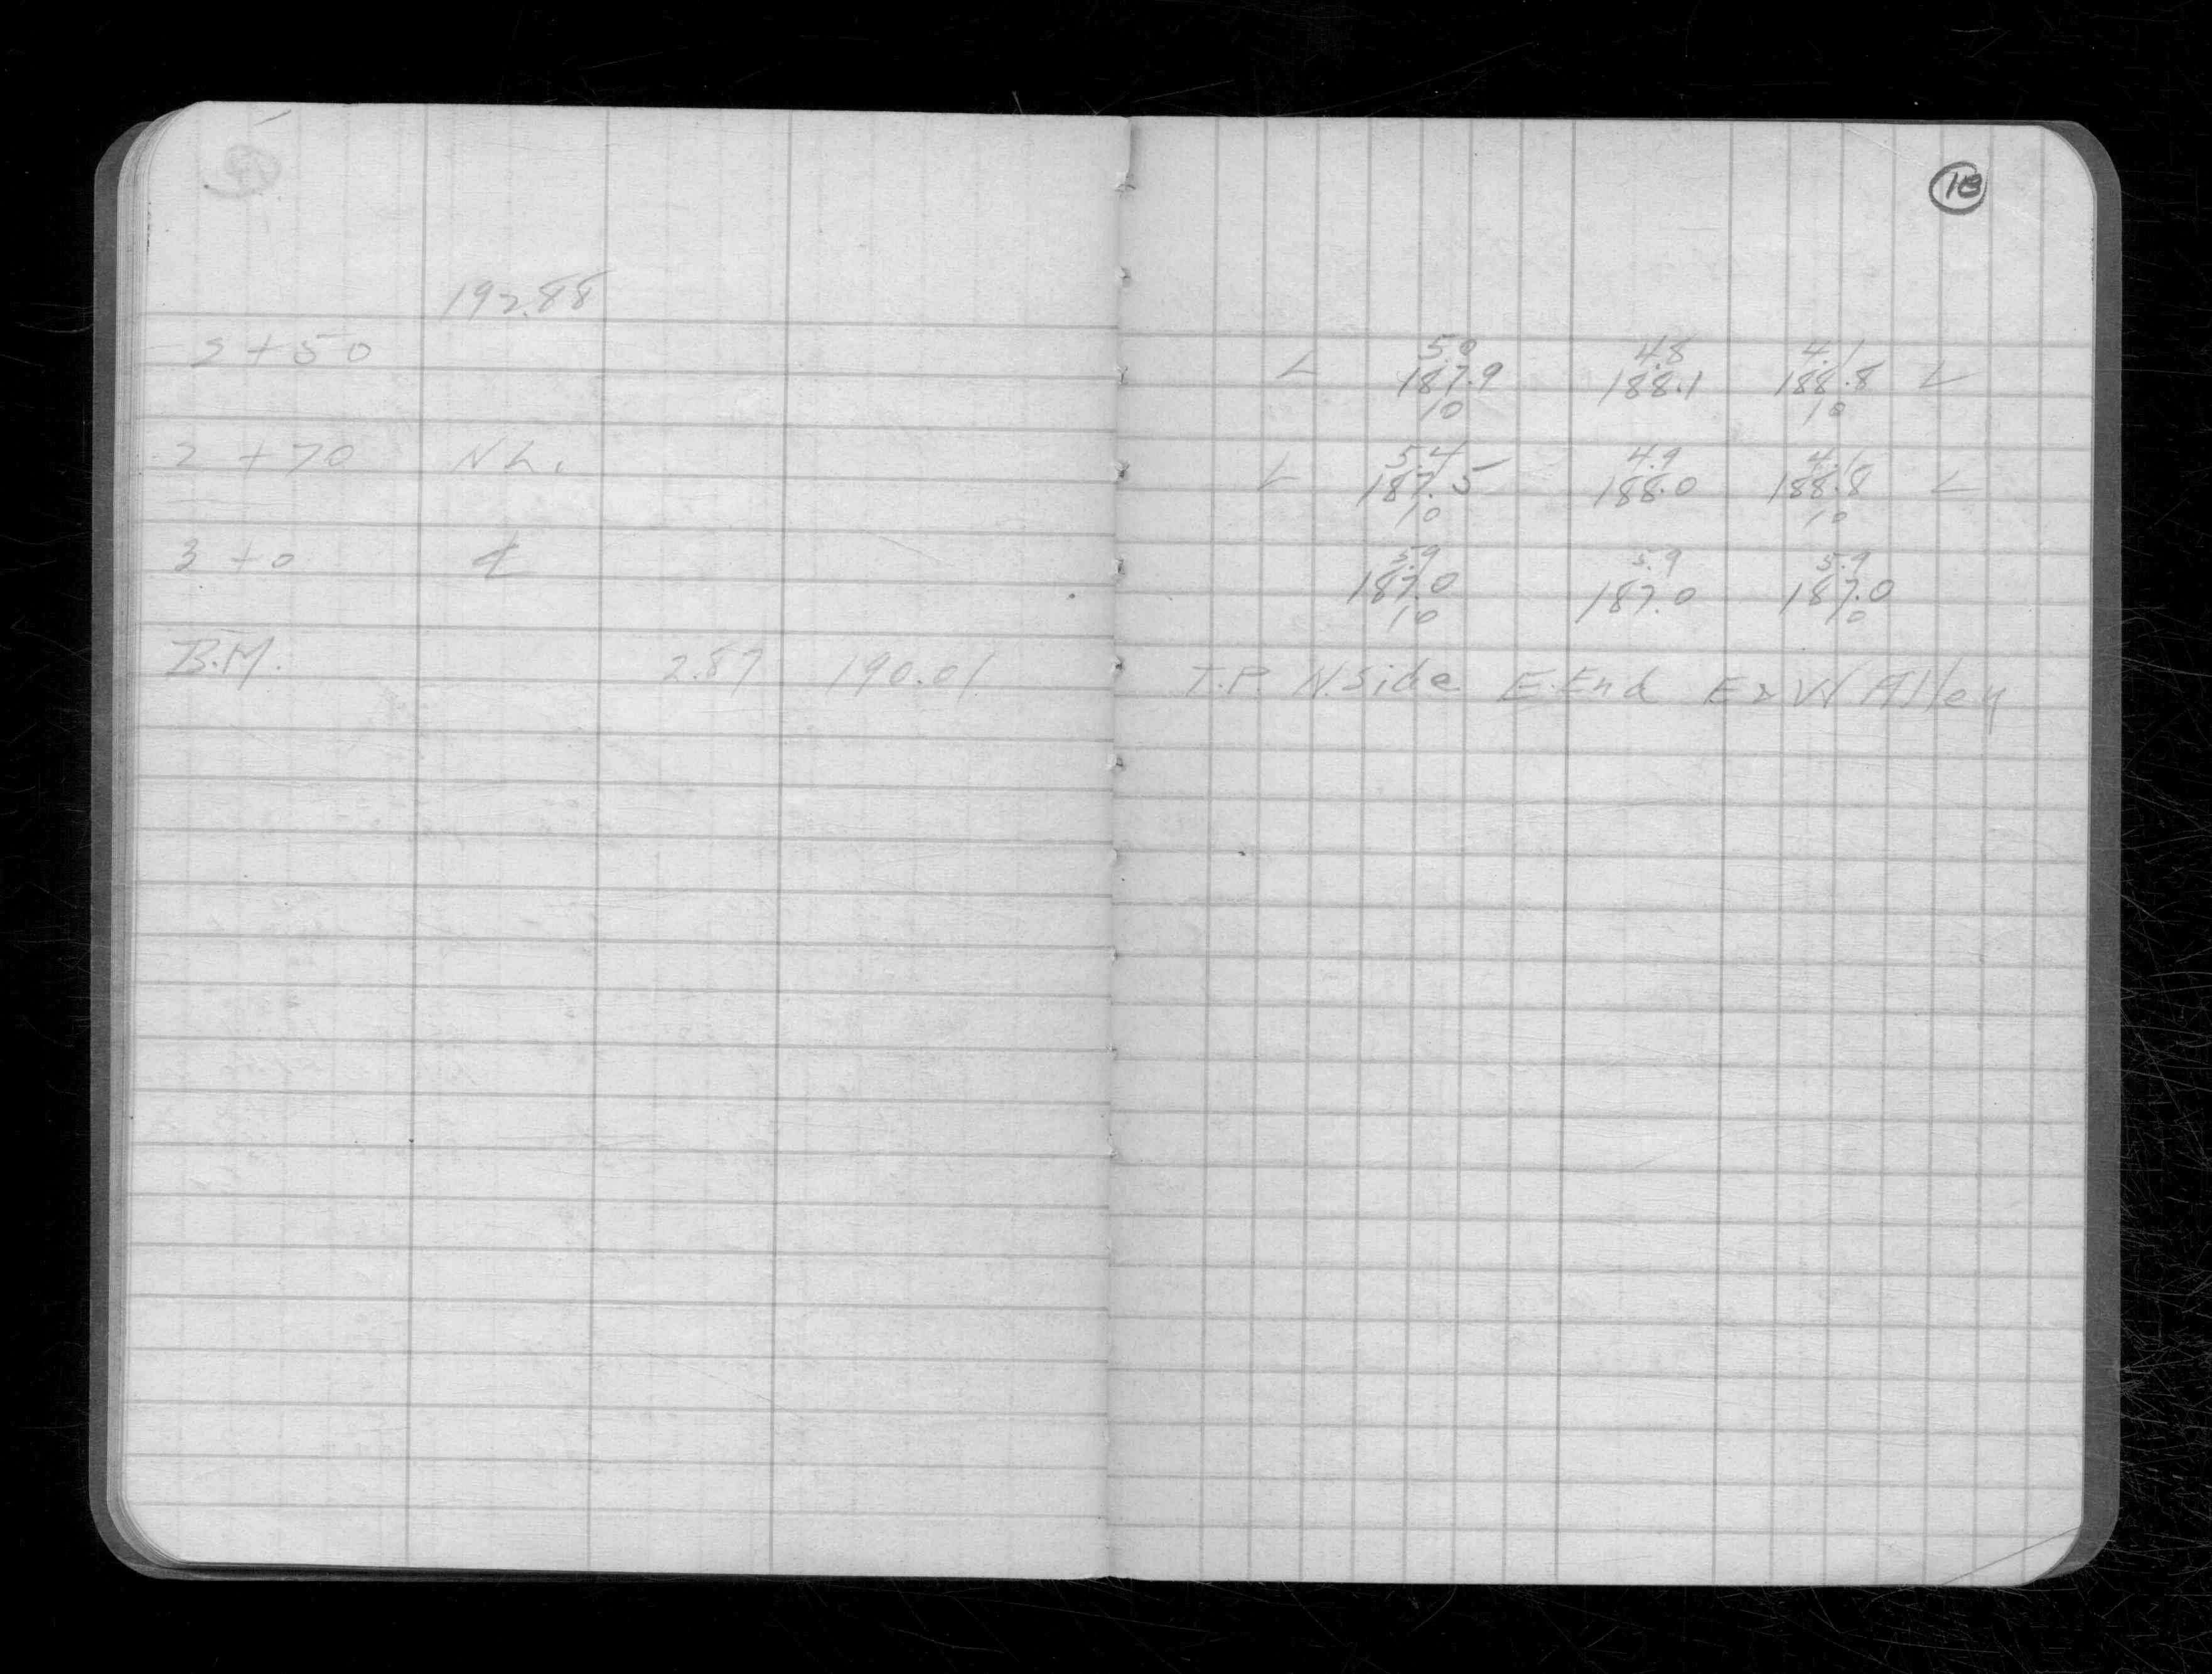 18
192.88
2+50
L 5.0 4.8 4.1 L
187.9 188.1 188.8
10 10
2+70 N L.
L 5.4 4.9 4.1 L
187.5 188.0 188.8
10 10
3+0 ℄
5.9 5.9 5.9
187.0 187.0 187.0
10 10
B.M. 2.87 190.01 T.P. N. Side E. End E & W Alley